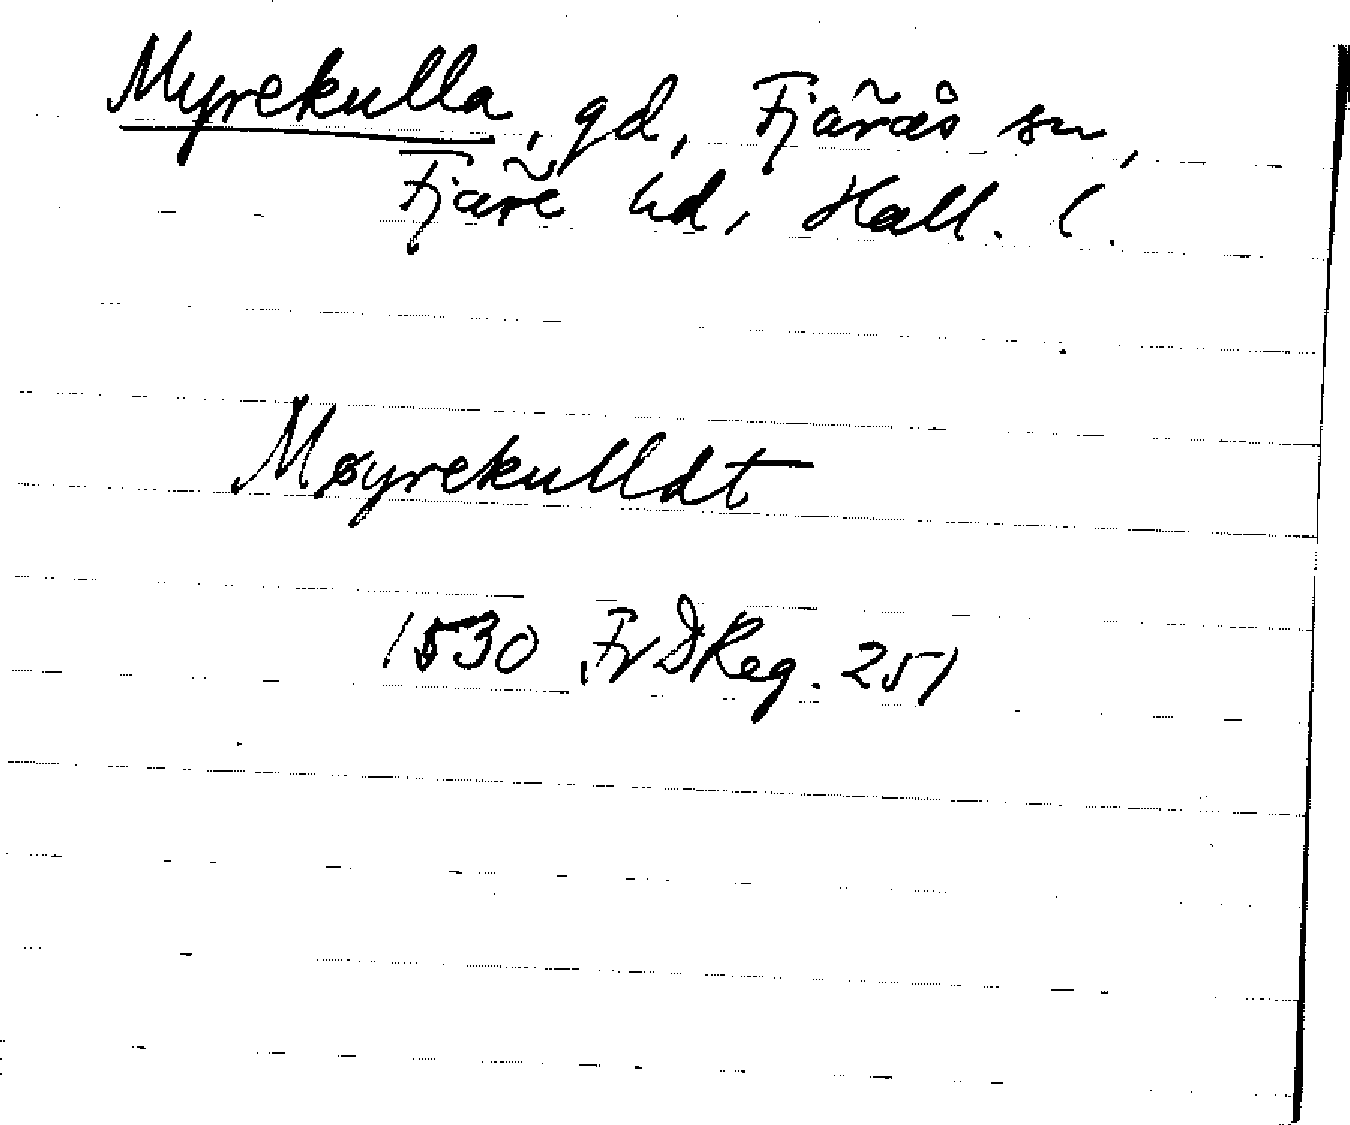 Myrekulla, gd, Fjärås sn,
Fjäre hd, Hall. l.
Møyrekulldt
1530 FrDReg. 251